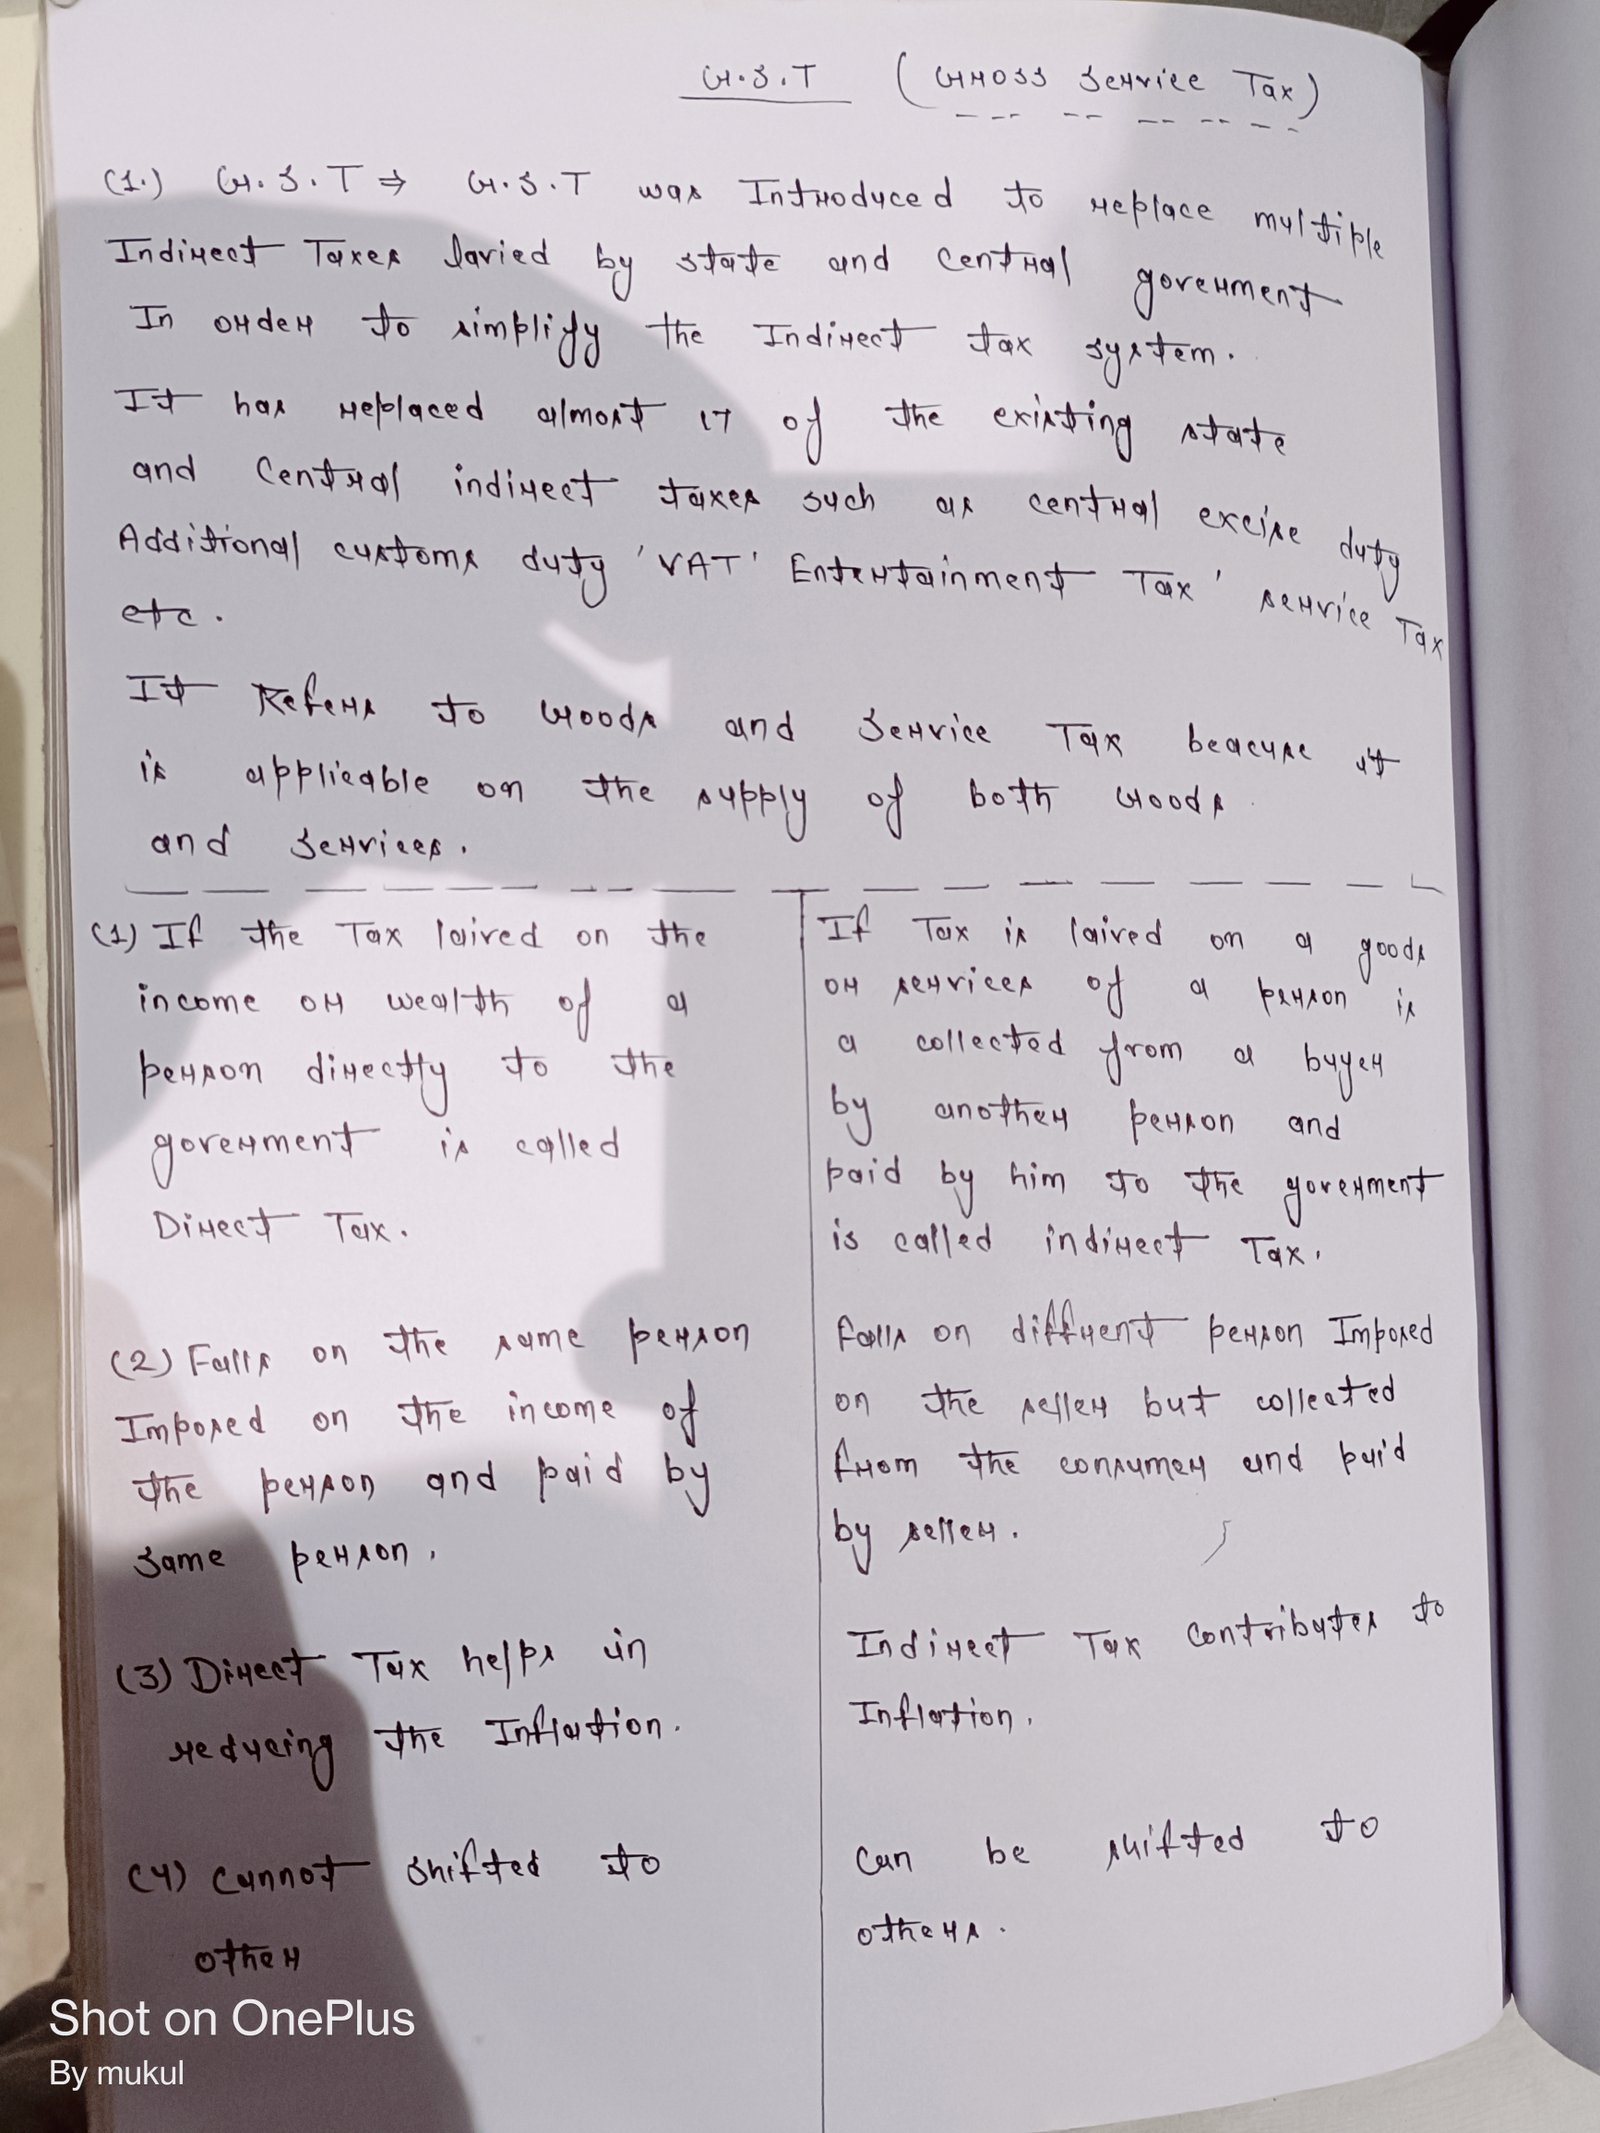 G.S.T (Gross Service Tax)
(1.) G.S.T ⇒ G.S.T was Introduced to replace multiple
Indirect Taxes lavied by state and central goverment
In order to simplify the Indirect tax system.
It has replaced almost 17 of the existing state
and Central indirect taxes such as central excise duty
Additional customs duty 'VAT' Entertainment Tax' service Tax
etc.
It Refers to Goods and Service Tax beacuse it
is applicable on the supply of both Goods
and Services.
(1) If the Tax laired on the
income or wealth of a
person directly to the
goverment is called
Direct Tax.
(2) Falls on the same person
Imposed on the income of
the person and paid by
same person.
(3) Direct Tax helps in
reducing the Inflation.
(4) Cannot shifted to
other
If Tax is laired on a goods
or services of a person is
a collected from a buyer
by another person and
paid by him to the goverment
is called indirect Tax.
Falls on diffrent person Imposed
on the seller but collected
from the consumer and paid
by seller.
Indirect Tax contributes to
Inflation.
Can be shifted to
others.
Shot on OnePlus
By mukul